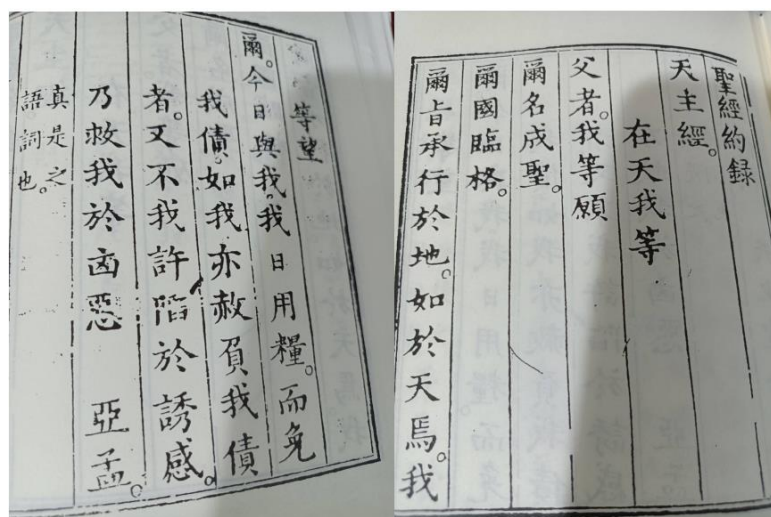 聖經約錄
天主經。
在天我等
父者。我等願
爾名成聖。
爾國臨格。
爾旨承行於地。如於天焉。我
等望
爾。今日與我。我日用糧。而免
我債。如我亦赦負我債
者。又不我許陷於誘感。
乃救我於凶惡 亞孟。
真是之
語詞也。